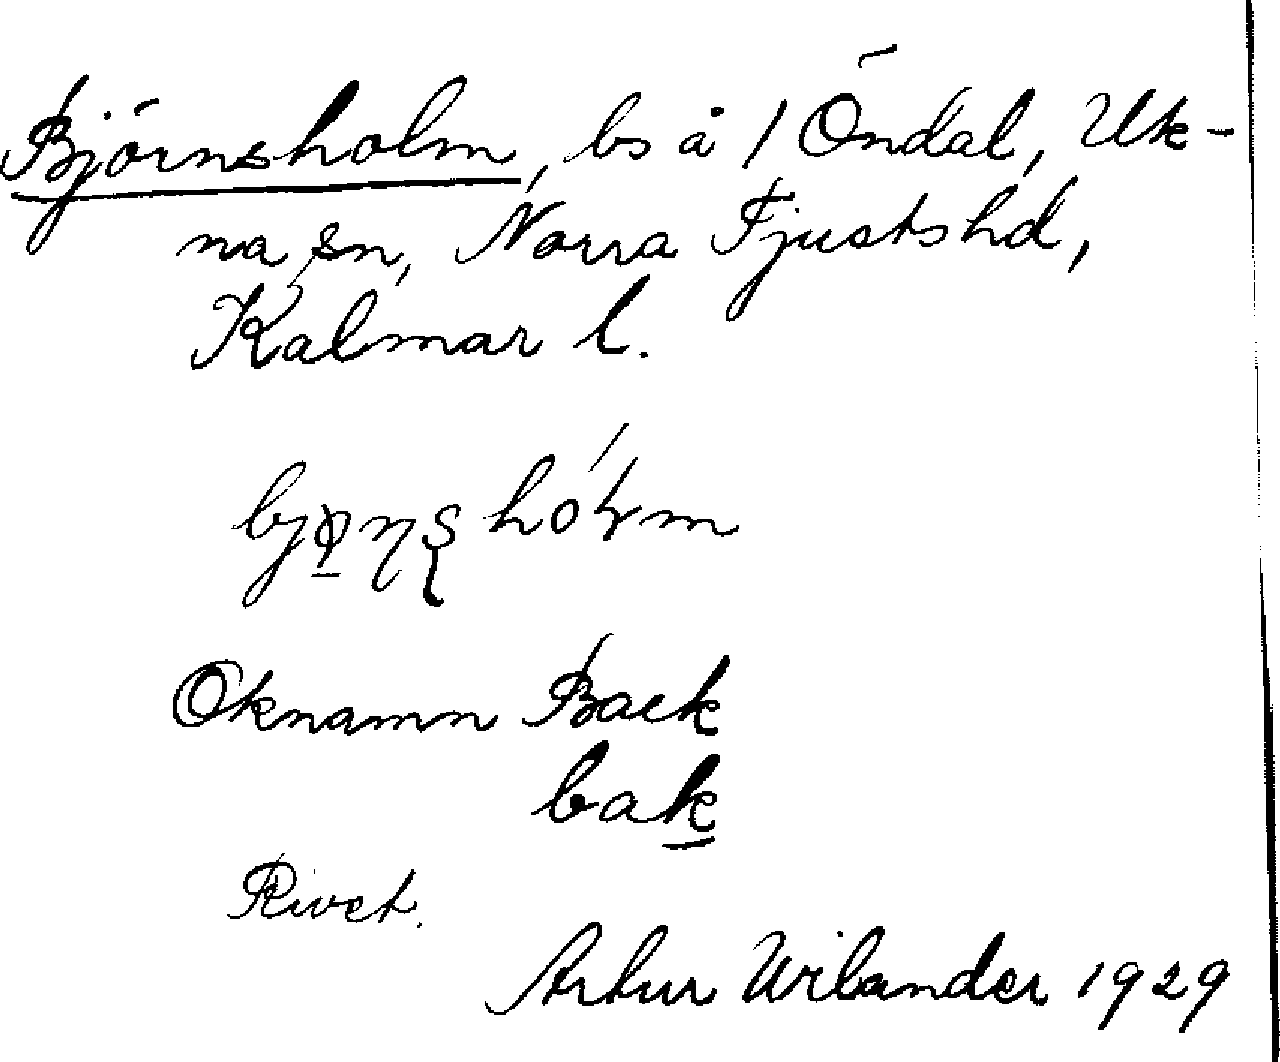 Björnsholm, bs å 1 Öndal, Uk-
na sn, Norra Tjusts hd,
Kalmar l.
Öknamn Back
bak
Rivet.
Artur Wilander 1929